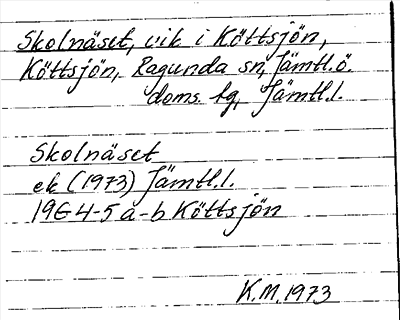 Skolnäset, vik i Köttsjön,
Köttsjön, Ragunda sn, Jämtl.ö.
doms. tg, Jämtl.l.
Skolnäset
ek (1973) Jämtl.l.
19G4-5a-b Köttsjön
K.M. 1973